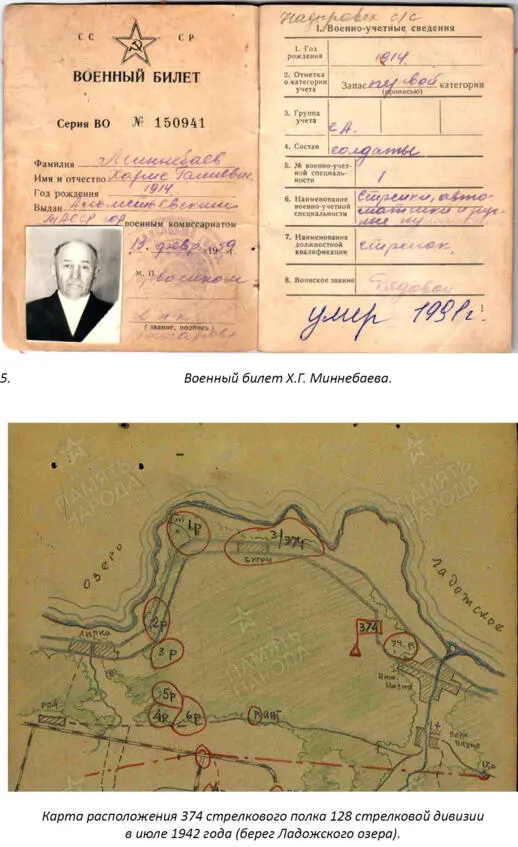 СС СР
ВОЕННЫЙ БИЛЕТ
Серия ВО № 150941
Фамилия Миннебаев
Имя и отчество Харис
Год рождения 1914
Выдан
ТАССР военным комиссариатом
М. П.
(звание, подпись)
с/с
I. Военно-учетные сведения
1. Год рождения 1914
2. Отметка о категории учета Запас первой категории
(прописью)
3. Группа учета СА.
4. Состав солдаты
5. № военно-учетной специальности 1
6. Наименование военно-учетной специальности Стрелки, авто-
матчики и
7. Наименование должностной квалификации стрелок
8. Воинское звание Рядовой
умер 1991г.
1
5. Военный билет Х.Г. Миннебаева.
ПАМЯТЬ НАРОДА
ПАМЯТЬ НАРОДА
ПАМЯТЬ НАРОДА
ОЗЕРО
ЛАДОЖСКОЕ
1р
3/374
БУГРЫ
2р
ЛИПКА
3р
374
уч. р.
5р
4р
6р
РП4
17,0
Карта расположения 374 стрелкового полка 128 стрелковой дивизии
в июле 1942 года (берег Ладожского озера).